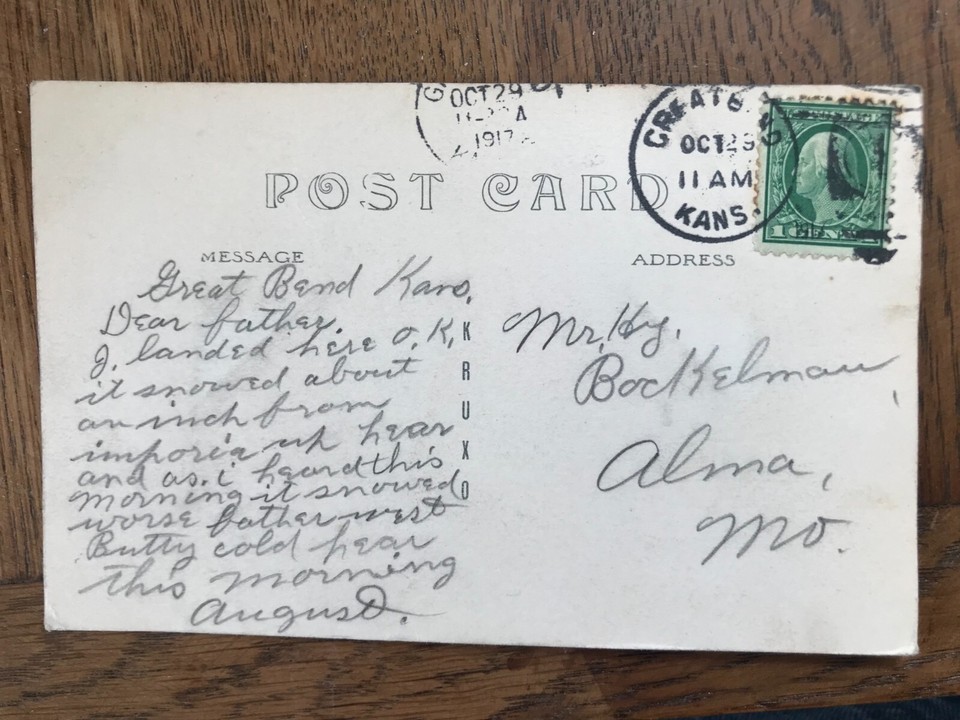 OCT 29
A
1917
GREAT B
OCT 29
11 AM
KANS.
POST CARD
MESSAGE
ADDRESS
Great Bend Kans,
Dear father.
I. landed here O.K.
it snowed about
an inch from
imporia up hear
and as. i heard this
morning it snowed
worse father west
Butty cold hear
this morning
August.
KRUXO
Mr. Hy.
Bockelman
Alma,
Mo.
1 CENT